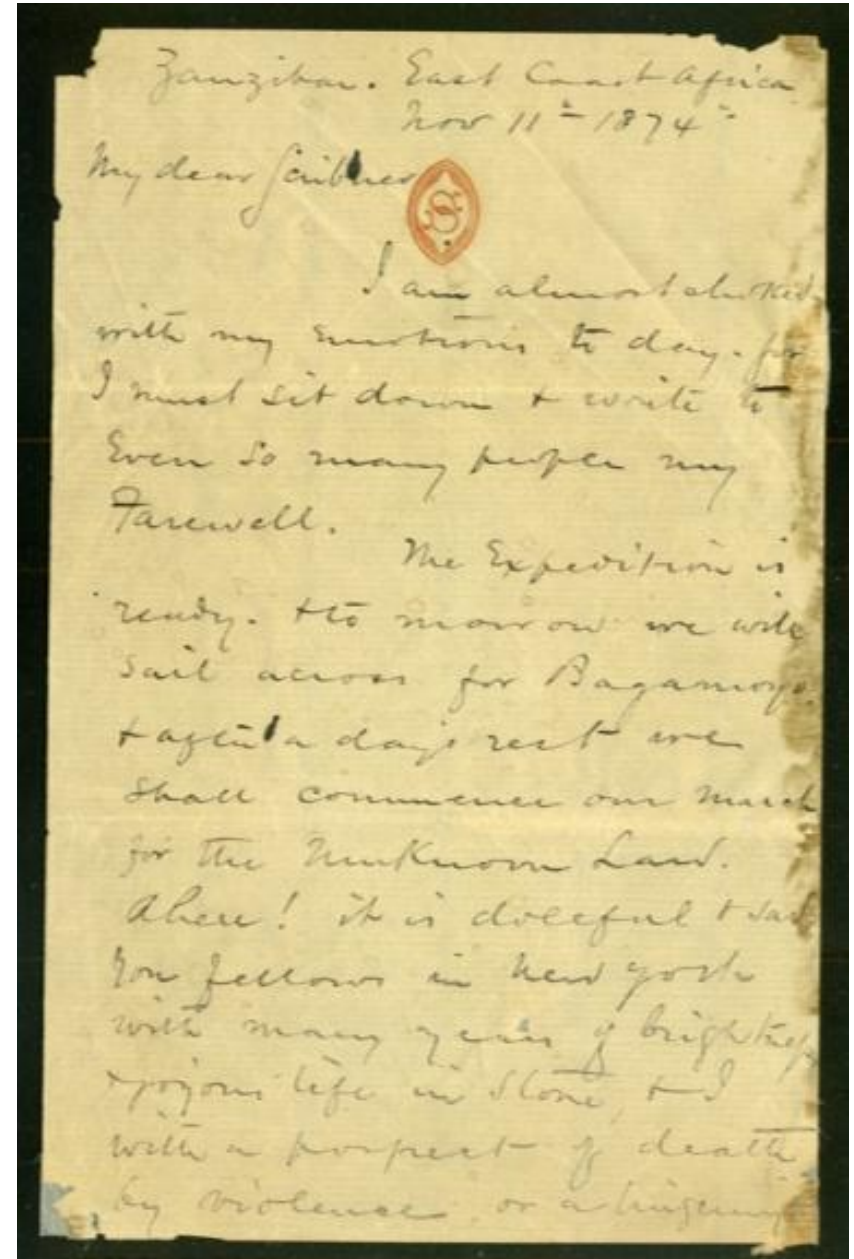 Zanzibar. East Coast Africa
Nov 11th 1874
My dear Scribner
I am almost choked
with my emotions to day. for
I must sit down & write to
Ever so many people my
Farewell.
The Expedition is
ready. & to morrow we will
sail across for Bagamoyo.
& after a days rest we
shall commence our march
for the Unknown Land.
it is doleful & sad
You fellows in New York
with many years of bright
& joyous life in store, & I
with a prospect of death
by violence or a lingering